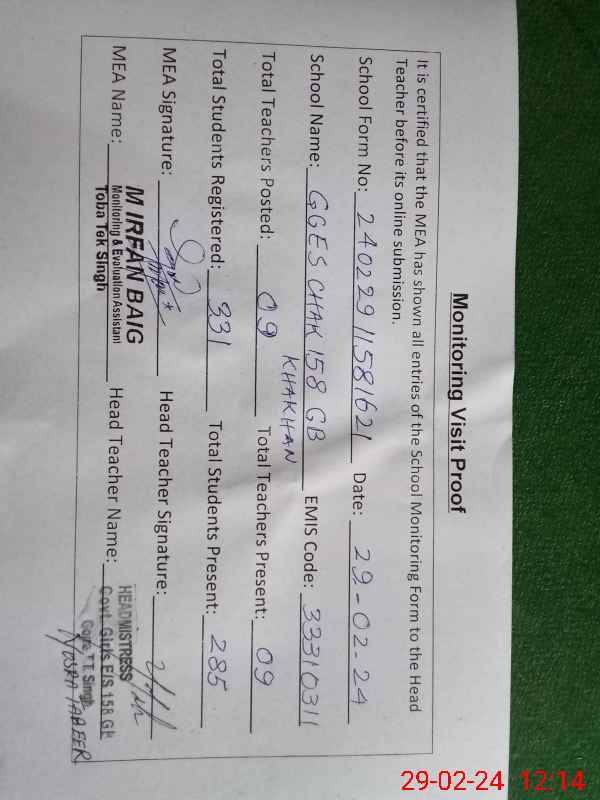 Monitoring Visit Proof
It is certified that the MEA has shown all entries of the School Monitoring Form to the Head
Teacher before its online submission.
School Form No: 24022911581621 Date: 29-02-24
School Name: GGES CHAK 158 GB EMIS Code: 33310311
KHAKHAN
Total Teachers Posted: 09 Total Teachers Present: 09
Total Students Registered: 331 Total Students Present: 285
MEA Signature: Head Teacher Signature:
MEA Name: Head Teacher Name:
M IRFAN BAIG
Monitoring & Evaluation Assistant
Toba Tek Singh
HEADMISTRESS
Govt. Girls E/S 158 GB
T.T. Singh
29-02-24 12:14